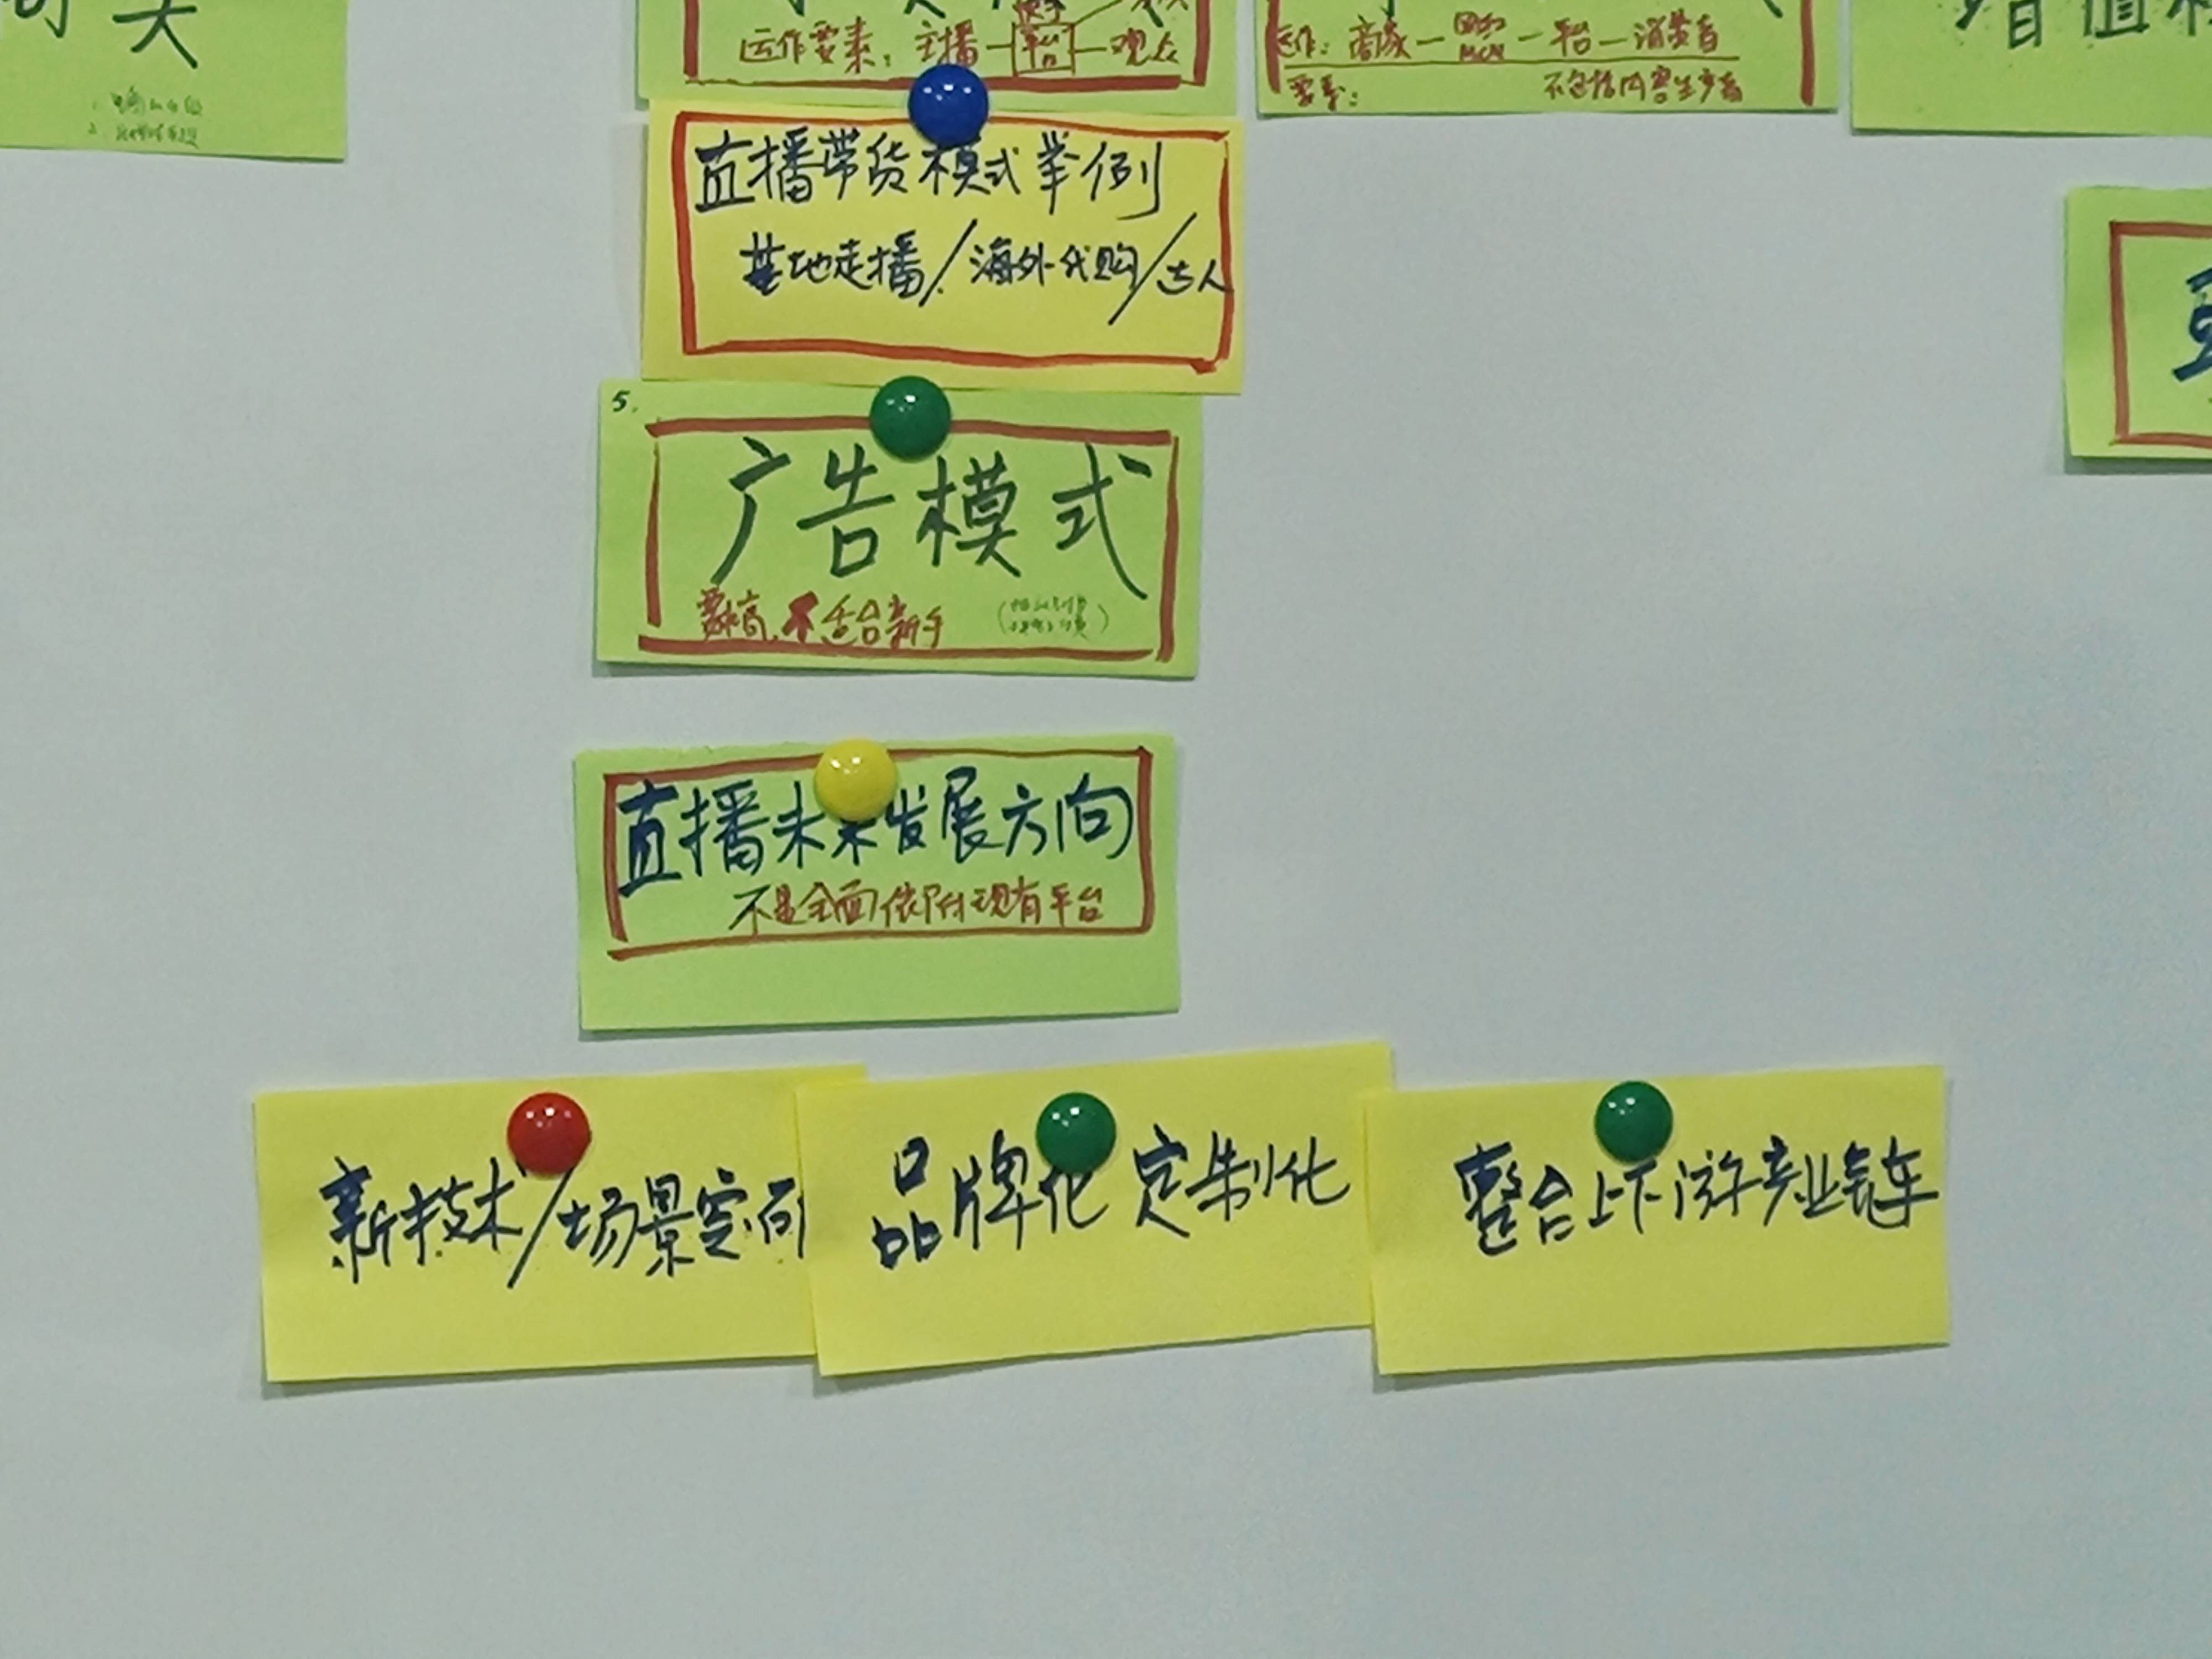 运作要素：主播—平台—观众
运作：商家—团购MCN—平台—消费者
要素： 不包括内容生产者
增值
直播带货模式举例
基地走播/海外代购/达人
5.
广告模式
要求高，不适合新手
直播未来发展方向
不是全面依附现有平台
新技术/场景空间
品牌化 定制化
整合上下游产业链车